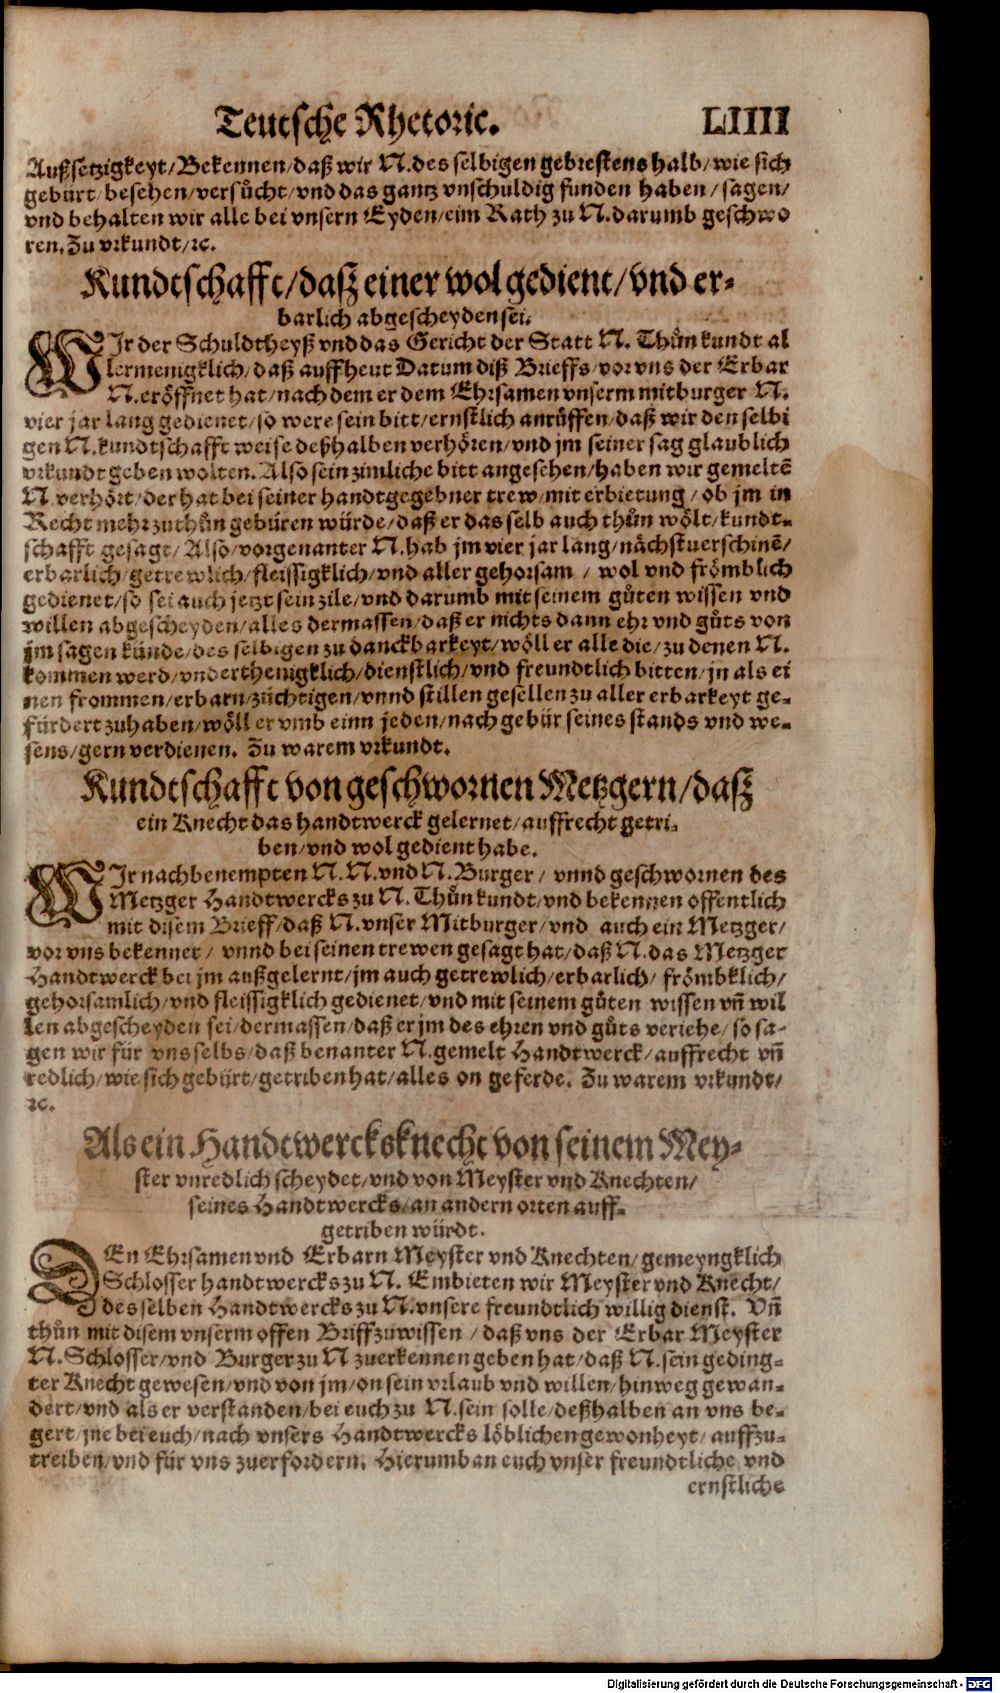 Teutsche Rhetoric. LIIII
Außsetzigkeyt/Bekennen/daß wir N.des selbigen gebrestens halb/wie sich
gebürt/besehen/versůcht/vnd das gantz vnschuldig funden haben/sagen/
vnd behalten wir alle bei vnsern Eyden/eim Rath zu N.darumb geschwo
ren.Zu vrkundt/ꝛc.
Kundtschafft/dasz einer wol gedient/vnd er-
barlich abgescheyden sei.
WIr der Schuldtheyß vnd das Gericht der Statt N. Thůn kundt al
lermenigklich/daß auff heut Datum diß Brieffs/vor vns der Erbar
N.eröffnet hat/nach dem er dem Ehrsamen vnserm mitburger N.
vier jar lang gedienet/so were sein bitt/ernstlich anrůffen/daß wir den selbi
gen N.kundtschafft weise deßhalben verhören/vnd jm seiner sag glaublich
vrkundt geben wolten.Also sein zimliche bitt angesehen/haben wir gemeltē
N.verhört/der hat bei seiner handtgegebner trew/mit erbietung/ob jm in
Recht mehr zuthůn gebüren würde/daß er das selb auch thůn wölt/kundt-
schafft gesagt/Also/vorgenanter N.hab jm vier jar lang/nächstuerschinē/
erbarlich/getrewlich/fleissigklich/vnd aller gehorsam/ wol vnd frömblich
gedienet/so sei auch jetzt sein zile/vnd darumb mit seinem gůten wissen vnd
willen abgescheyden/alles dermassen/daß er nichts dann ehr vnd gůts von
jm sagen künde/des selbigen zu danckbarkeyt/wöll er alle die/zu denen N.
kommen werd/vnderthenigklich/dienstlich/vnd freundtlich bitten/jn als ei
nen frommen/erbarn/züchtigen/vnnd stillen gesellen zu aller erbarkeyt ge-
fürdert zuhaben/wöll er vmb einn jeden/nach gebür seines stands vnd we-
sens/gern verdienen. Zu warem vrkundt.
Kundtschafft von geschwornen Metzgern/dasz
ein Knecht das handtwerck gelernet/auffrecht getri-
ben/vnd wol gedient habe.
WIr nachbenempten N.N.vnd N.Burger/ vnnd geschwornen des
Metzger Handtwercks zu N.Thůn kundt/vnd bekennen offentlich
mit disem Brieff/daß N.vnser Mitburger/vnd auch ein Metzger/
vor vns bekennet/ vnnd bei seinen trewen gesagt hat/daß N.das Metzger
Handtwerck bei jm außgelernt/jm auch getrewlich/erbarlich/ frömbklich/
gehorsamlich/vnd fleissigklich gedienet/vnd mit seinem gůten wissen vn̄ wil
len abgescheyden sei/dermassen/daß er jm des ehren vnd gůts veriehe/so sa-
gen wir für vns selbs/daß benanter N.gemelt Handtwerck/auffrecht vn̄
redlich/wie sich gebürt/getriben hat/alles on geferde. Zu warem vrkundt/
ꝛc.
Als ein Handtwercksknecht von seinem Mey-
ster vnredlich scheydet/vnd von Meyster vnd Knechten/
seines Handtwercks/an andern orten auff-
getriben würdt.
DEn Ehrsamen vnd Erbarn Meyster vnd Knechten/gemeyngklich
Schlosser handtwercks zu N. Embieten wir Meyster vnd Knecht/
des selben Handtwercks zu N.vnsere freundtlich willig dienst. Vn̄
thůn mit disem vnserm offen Briff zuwissen/daß vns der Erbar Meyster
N.Schlosser/vnd Burger zu N zuerkennen geben hat/daß N.sein geding-
ter Knecht gewesen/vnd von jm/on sein vrlaub vnd willen/hinweg gewan-
dert/vnd als er verstanden/bei euch zu N.sein solle/deßhalben an vns be-
gert/jne bei euch/nach vnsers Handtwercks löblichen gewonheyt/auffzu-
treiben/vnd für vns zuerfordern. Hierumb an euch vnser freundtliche vnd
ernstliche
Digitalisierung gefördert durch die Deutsche Forschungsgemeinschaft - DFG